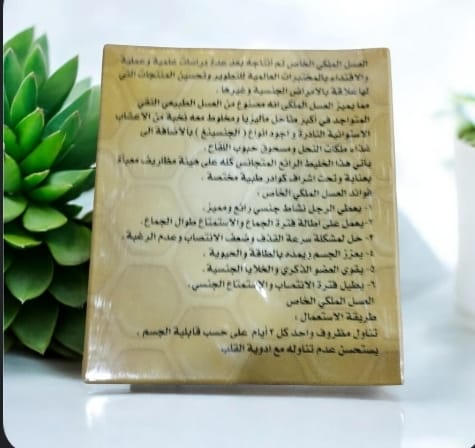 العسل الملكي الخاص تم انتاجه بعد عدة دراسات علمية وعملية
والاقتداء بالمختبرات العالمية للتطوير وتحسين المنتجات التي
لها علاقة بالامراض الجنسية وغيرها .
مما يميز العسل الملكي انه مصنوع من العسل الطبيعي النقي
المتواجد في أكبر مناحل ماليزيا ومخلوط معه نخبة من الاعشاب
الاستوائية النادرة و اجود انواع ( الجنسينغ ) بالاضافة الى
غذاء ملكات النحل ومسحوق حبوب اللقاح .
يأتي هذا الخليط الرائع المتجانس كله على هيئة مظاريف معبأة
بعناية وتحت اشراف كوادر طبية مختصة .
فوائد العسل الملكي الخاص :
١- يعطي الرجل نشاط جنسي رائع ومميز .
٢- يعمل على اطالة فترة الجماع والاستمتاع طوال الجماع .
٣- حل لمشكلة سرعة القذف وضعف الانتصاب وعدم الرغبة .
٤- يعزز الجسم ويمده بالطاقة والحيوية .
٥- يقوي العضو الذكري والخلايا الجنسية .
٦- يطيل فترة الانتصاب والاستمتاع الجنسي .
العسل الملكي الخاص
طريقة الاستعمال :
تناول مظروف واحد كل ٢ أيام على حسب قابلية الجسم .
يستحسن عدم تناوله مع ادوية القلب